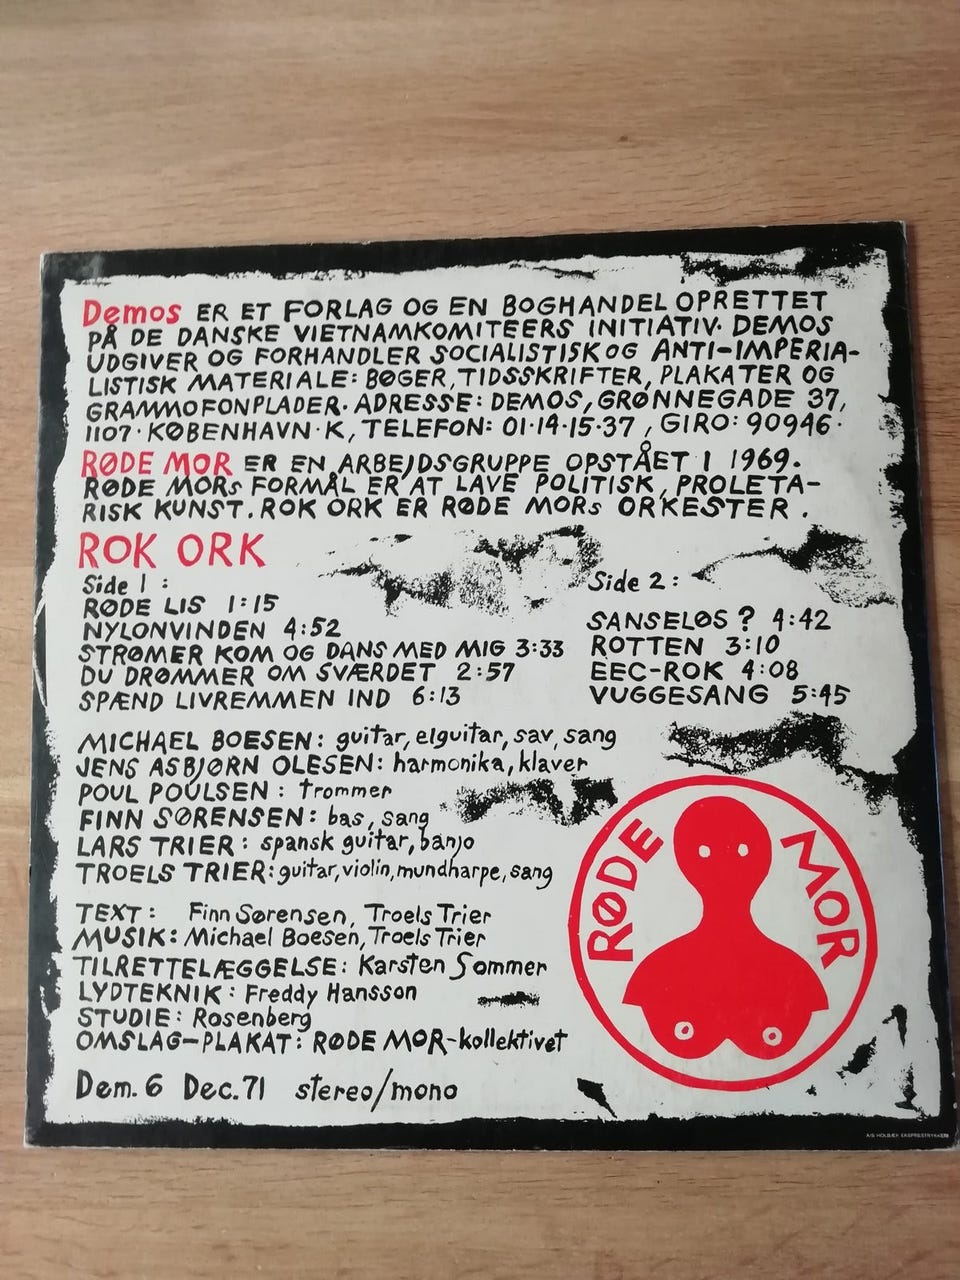 Demos ER ET FORLAG OG EN BOGHANDEL OPRETTET
PÅ DE DANSKE VIETNAMKOMITEERS INITIATIV. DEMOS
UDGIVER OG FORHANDLER SOCIALISTISK OG ANTI-IMPERIA-
LISTISK MATERIALE: BØGER, TIDSSKRIFTER, PLAKATER OG
GRAMMOFONPLADER. ADRESSE: DEMOS, GRØNNEGADE 37,
1107 · KØBENHAVN · K, TELEFON: 01·14·15·37, GIRO: 90946·
RØDE MOR ER EN ARBEJDSGRUPPE OPSTÅET I 1969.
RØDE MORs FORMÅL ER AT LAVE POLITISK, PROLETA-
RISK KUNST. ROK ORK ER RØDE MORs ORKESTER.
ROK ORK
Side 1:
RØDE LIS 1:15
NYLONVINDEN 4:52
STRØMER KOM OG DANS MED MIG 3:33
DU DRØMMER OM SVÆRDET 2:57
SPÆND LIVREMMEN IND 6:13
Side 2:
SANSELØS? 4:42
ROTTEN 3:10
EEC-ROK 4:08
VUGGESANG 5:45
MICHAEL BOESEN: guitar, elguitar, sav, sang
JENS ASBJØRN OLESEN: harmonika, klaver
POUL POULSEN: trommer
FINN SØRENSEN: bas, sang
LARS TRIER: spansk guitar, banjo
TROELS TRIER: guitar, violin, mundharpe, sang
TEXT: Finn Sørensen, Troels Trier
MUSIK: Michael Boesen, Troels Trier
TILRETTELÆGGELSE: Karsten Sommer
LYDTEKNIK: Freddy Hansson
STUDIE: Rosenberg
OMSLAG-PLAKAT: RØDE MOR-kollektivet
Dem. 6 Dec. 71 stereo/mono
RØDE MOR
A/S HOLBÆK EKSPRESTRYKKERI